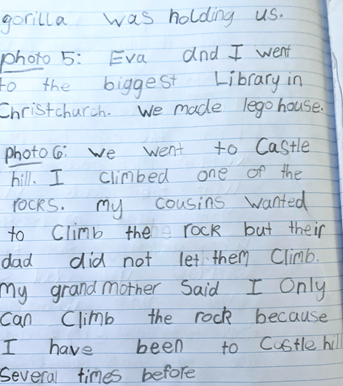 gorilla was holding us.
photo 5: Eva and I went
to the biggest Library in
Christchurch. we made lego house.
photo 6: we went to Castle
hill. I climbed one of the
rocks. my cousins wanted
to Climb the rock but their
dad did not let them Climb.
my grand mother Said I Only
Can Climb the rock because
I have been to Castle hill
Several times before